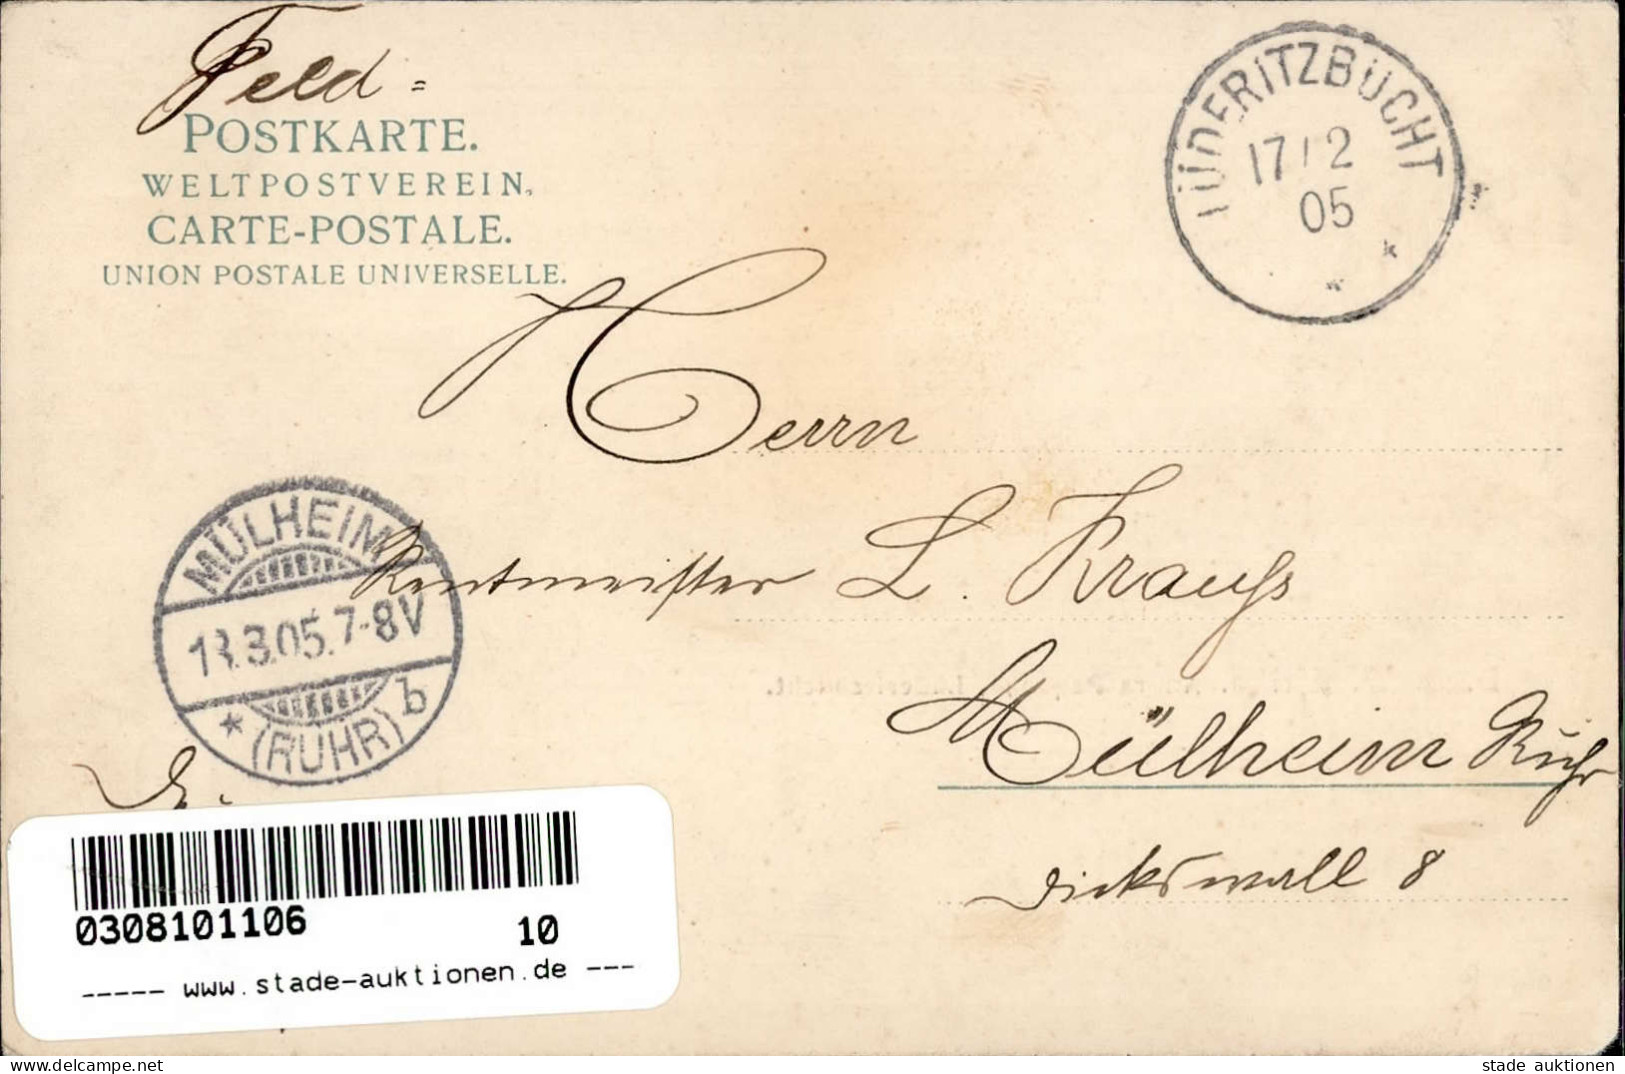 Feld=
POSTKARTE.
WELTPOSTVEREIN.
CARTE-POSTALE.
UNION POSTALE UNIVERSELLE.
LÜDERITZBUCHT
17/2
05
Herrn
MÜLHEIM
Rentmeister L. Krauss
13.3.05.7-8V
* (RUHR) b
Mülheim Ruhr
Dickswall 8
0308101106 10
----- www.stade-auktionen.de ---
www.delcampe.net
stade auktionen